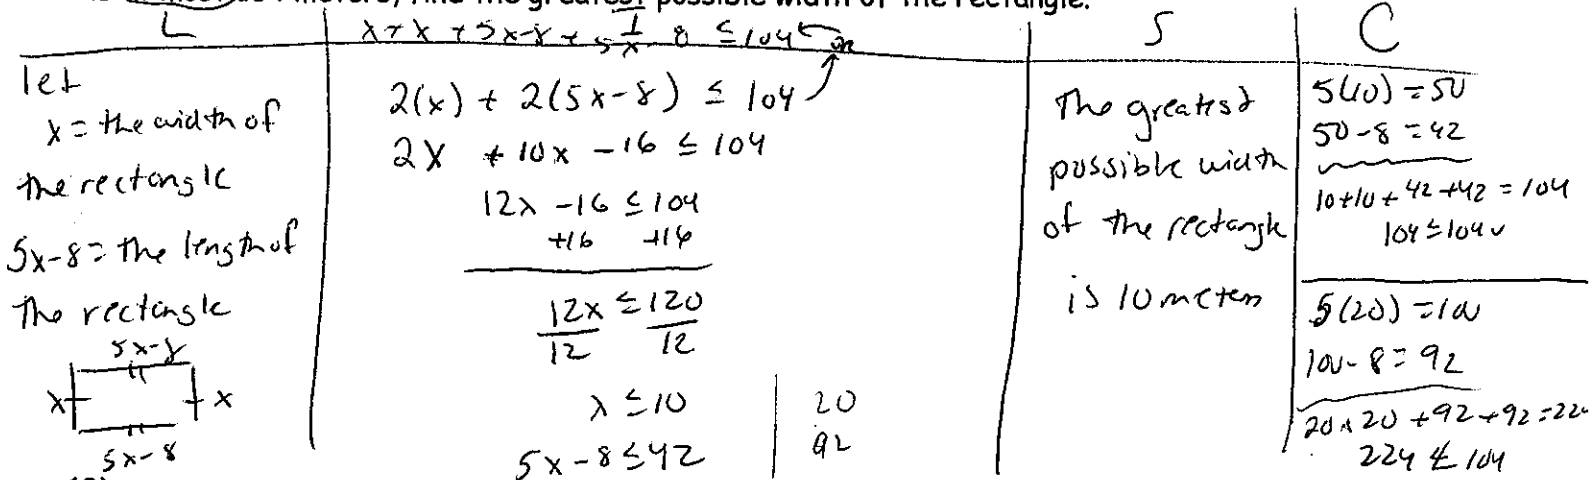 greatest possible width of the rectangle.
L
x+x+5x-8+5x-8 ≤104 or
S
C
let
x = the width of
the rectangle
5x-8= the length of
the rectangle
5x-8
x
x
5x-8
2(x) + 2(5x-8) ≤ 104
2x + 10x -16 ≤ 104
12x -16 ≤ 104
+16 +16
12x ≤ 120
12 12
x ≤ 10
5x-8≤42
20
92
The greatest
possible width
of the rectangle
is 10 meters
5(10) = 50
50-8 = 42
10+10+42+42 = 104
104≤104✓
5(20) = 100
100-8= 92
20+20+92+92=224
224 ≰ 104